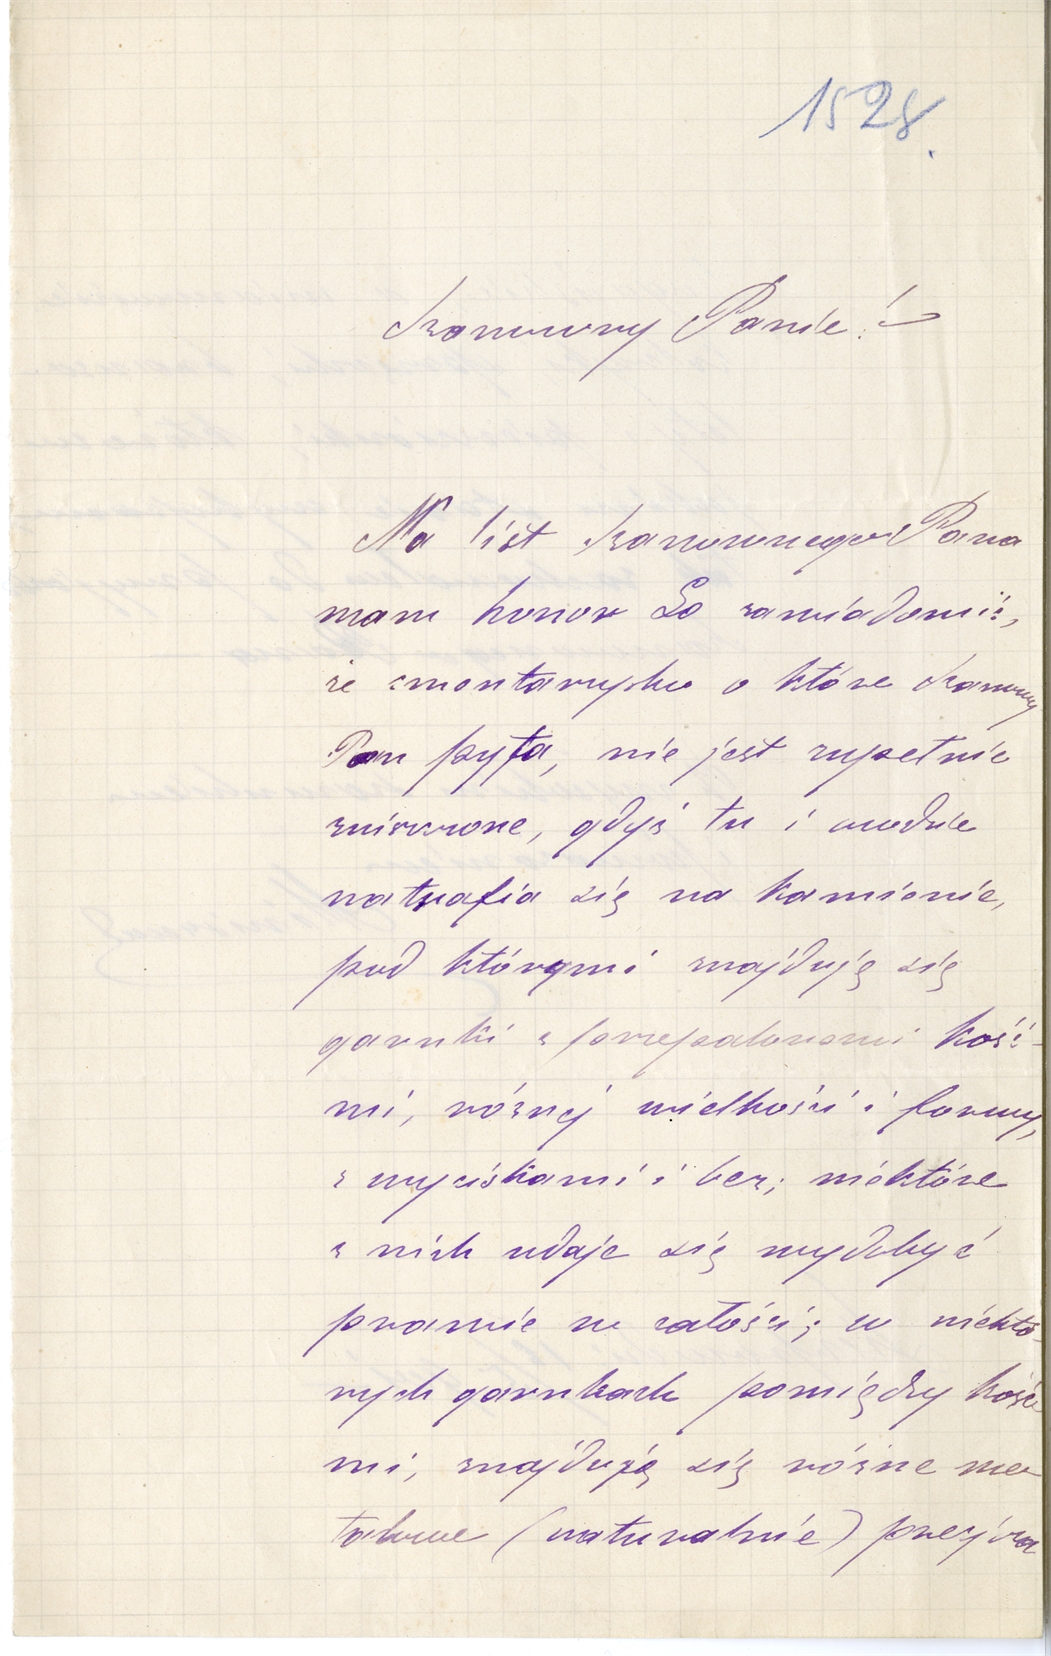 1528.
Szanowny Panie!
Na list Szanownego Pana
mam honor Go zawiadomić,
że cmentarzysko o które Szanowny
Pan pyta, nie jest zupełnie
zniszczone, gdyż tu i owdzie
natrafia się na kamienie,
pod którymi znajdują się
garnki z przepalonemi kość-
mi, różnej wielkości i formy,
z wyciskami i bez; niektóre
z nich udaje się wydobyć
prawie w całości; w niektó-
rych garnkach pomiędzy kość
mi, znajdują się różne me
talowe (naturalnie)